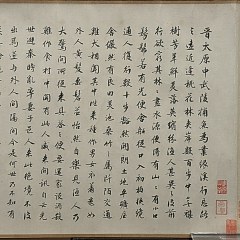 晉太原中武陵捕魚為業緣溪行忘路
之遠近逢桃花林夾岸數百步中無雜
樹芳草鮮美落英繽紛漁人甚異之復前
行欲窮其林林盡水源便得山山有口
髣髴若有光便舍船從口入初極狹纔
通人復行數十步豁然開朗土地平曠屋
舍儼然有良田美池桑竹之屬阡陌交通
雞犬相聞其中往來種作男女衣著悉如
外人黃髮垂髫並怡然自樂見漁人乃
大驚問所從來具答之便要還家設酒殺
雞作食村中聞有此人咸來問訊自云先
世避秦時亂率妻子邑人來此絕境不復
出焉遂與外人間隔問今是何世乃不知有